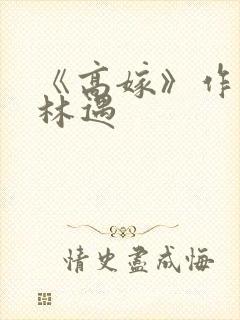 《高嫁》作
林遇
情史尽成悔